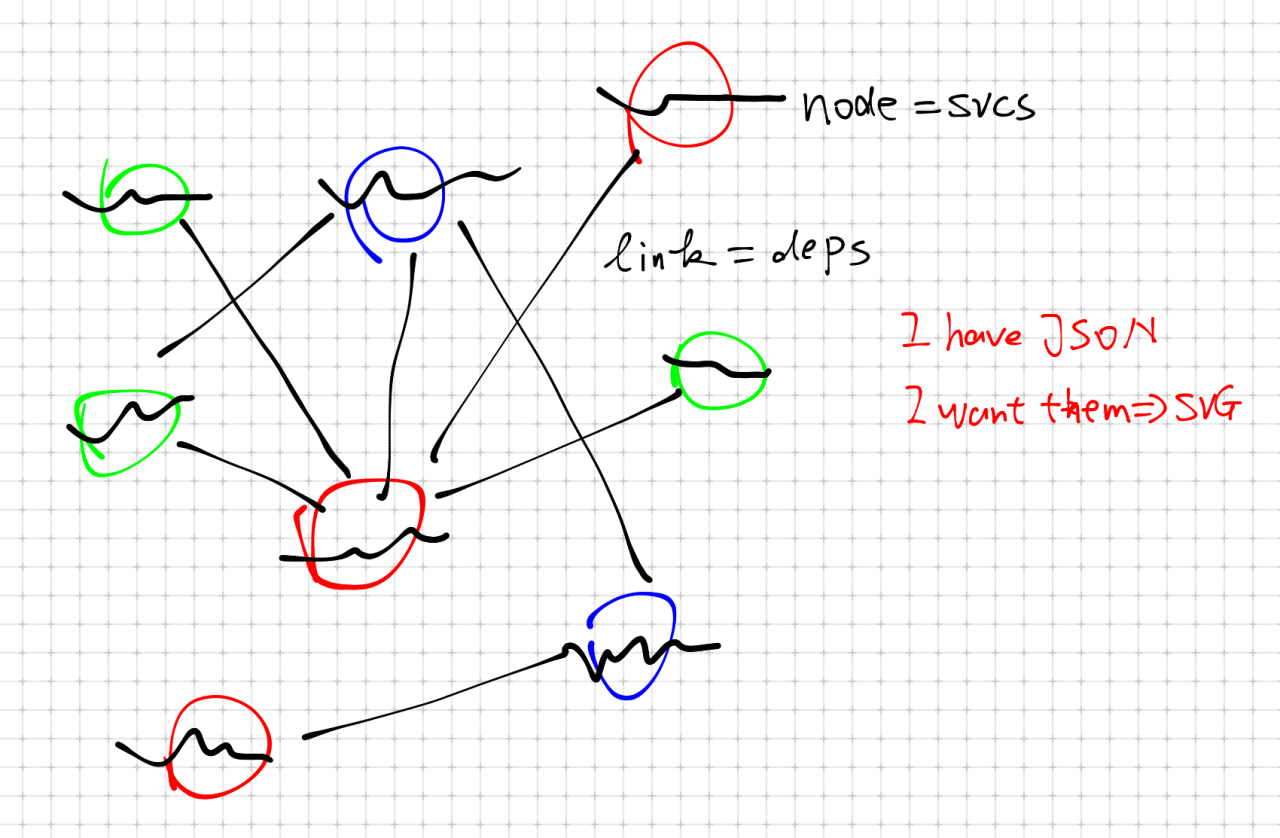 node = svcs
link = deps
I have JSON
I want them => SVG